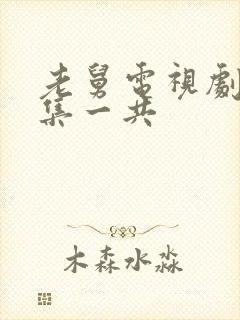 老舅電視劇
集一共
木森水淼